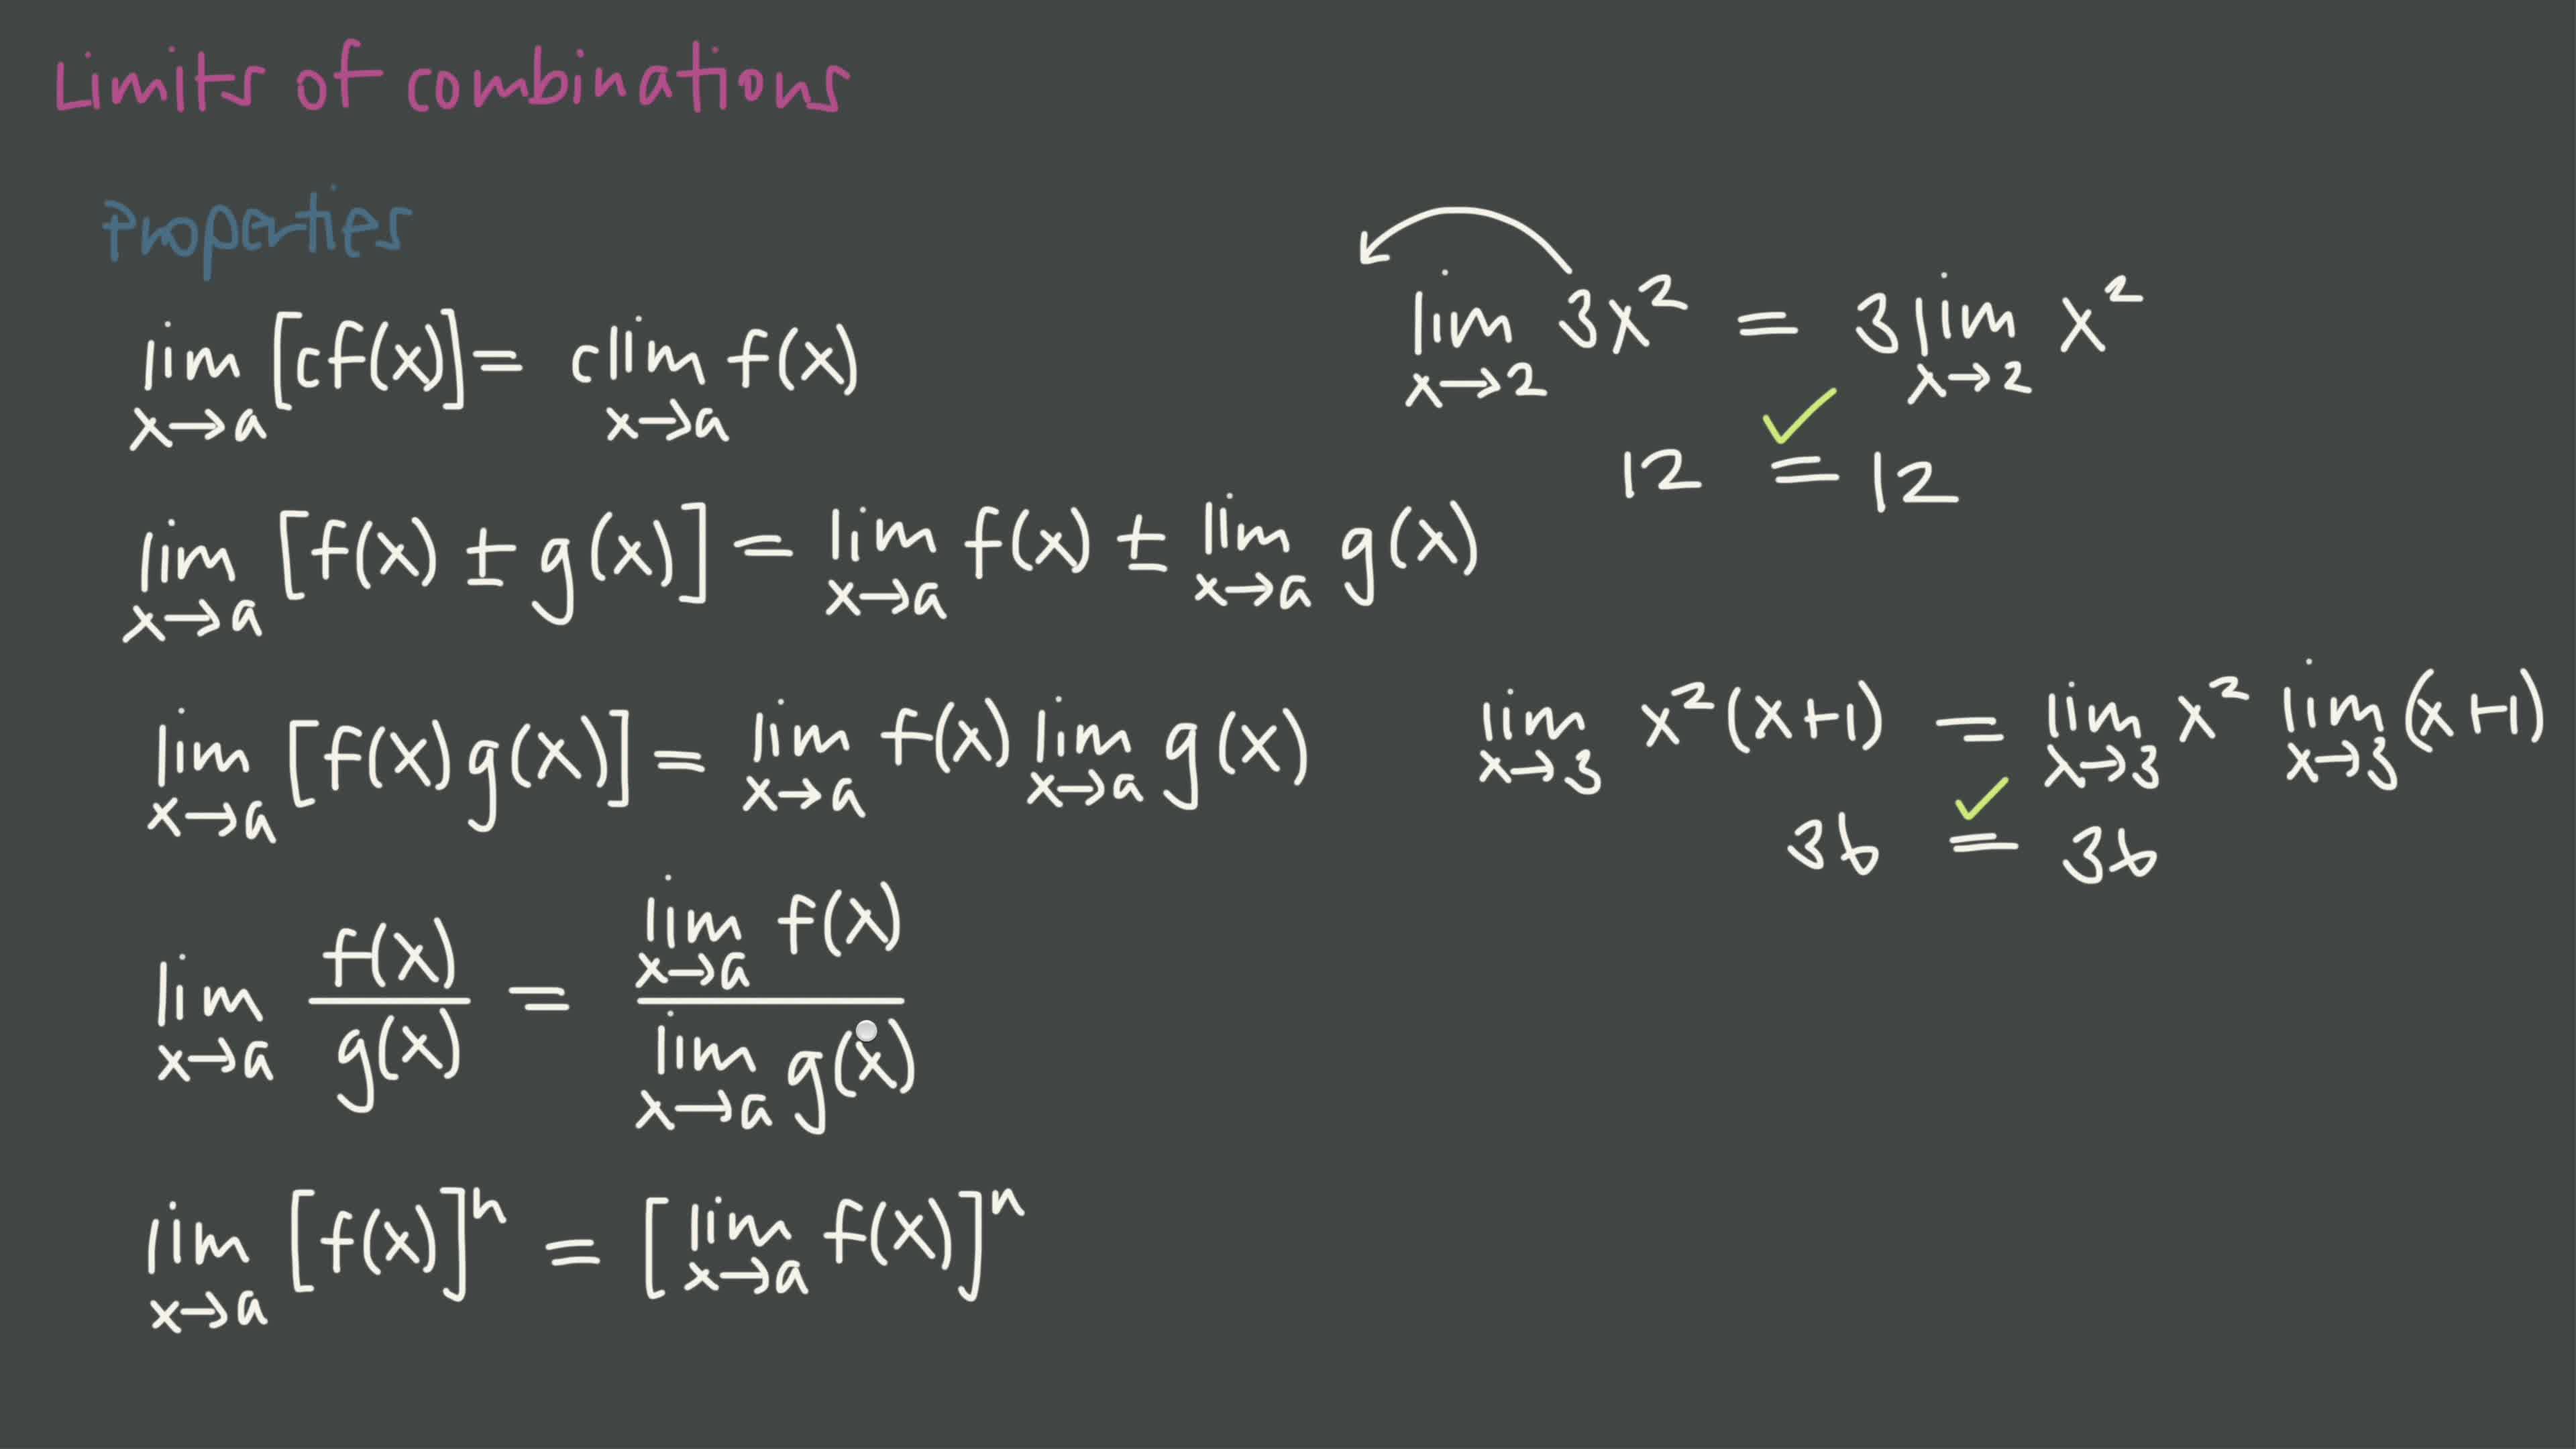 Limits of combinations
Properties
lim x→a [cf(x)] = c lim x→a f(x)
lim x→2 3x² = 3 lim x→2 x²
12 = 12
lim x→a [f(x) ± g(x)] = lim x→a f(x) ± lim x→a g(x)
lim x→a [f(x)g(x)] = lim x→a f(x) lim x→a g(x)
lim x→3 x²(x+1) = lim x→3 x² lim x→3 (x+1)
36 = 36
lim x→a f(x)/g(x) = lim x→a f(x) / lim x→a g(x)
lim x→a [f(x)]ⁿ = [lim x→a f(x)]ⁿ